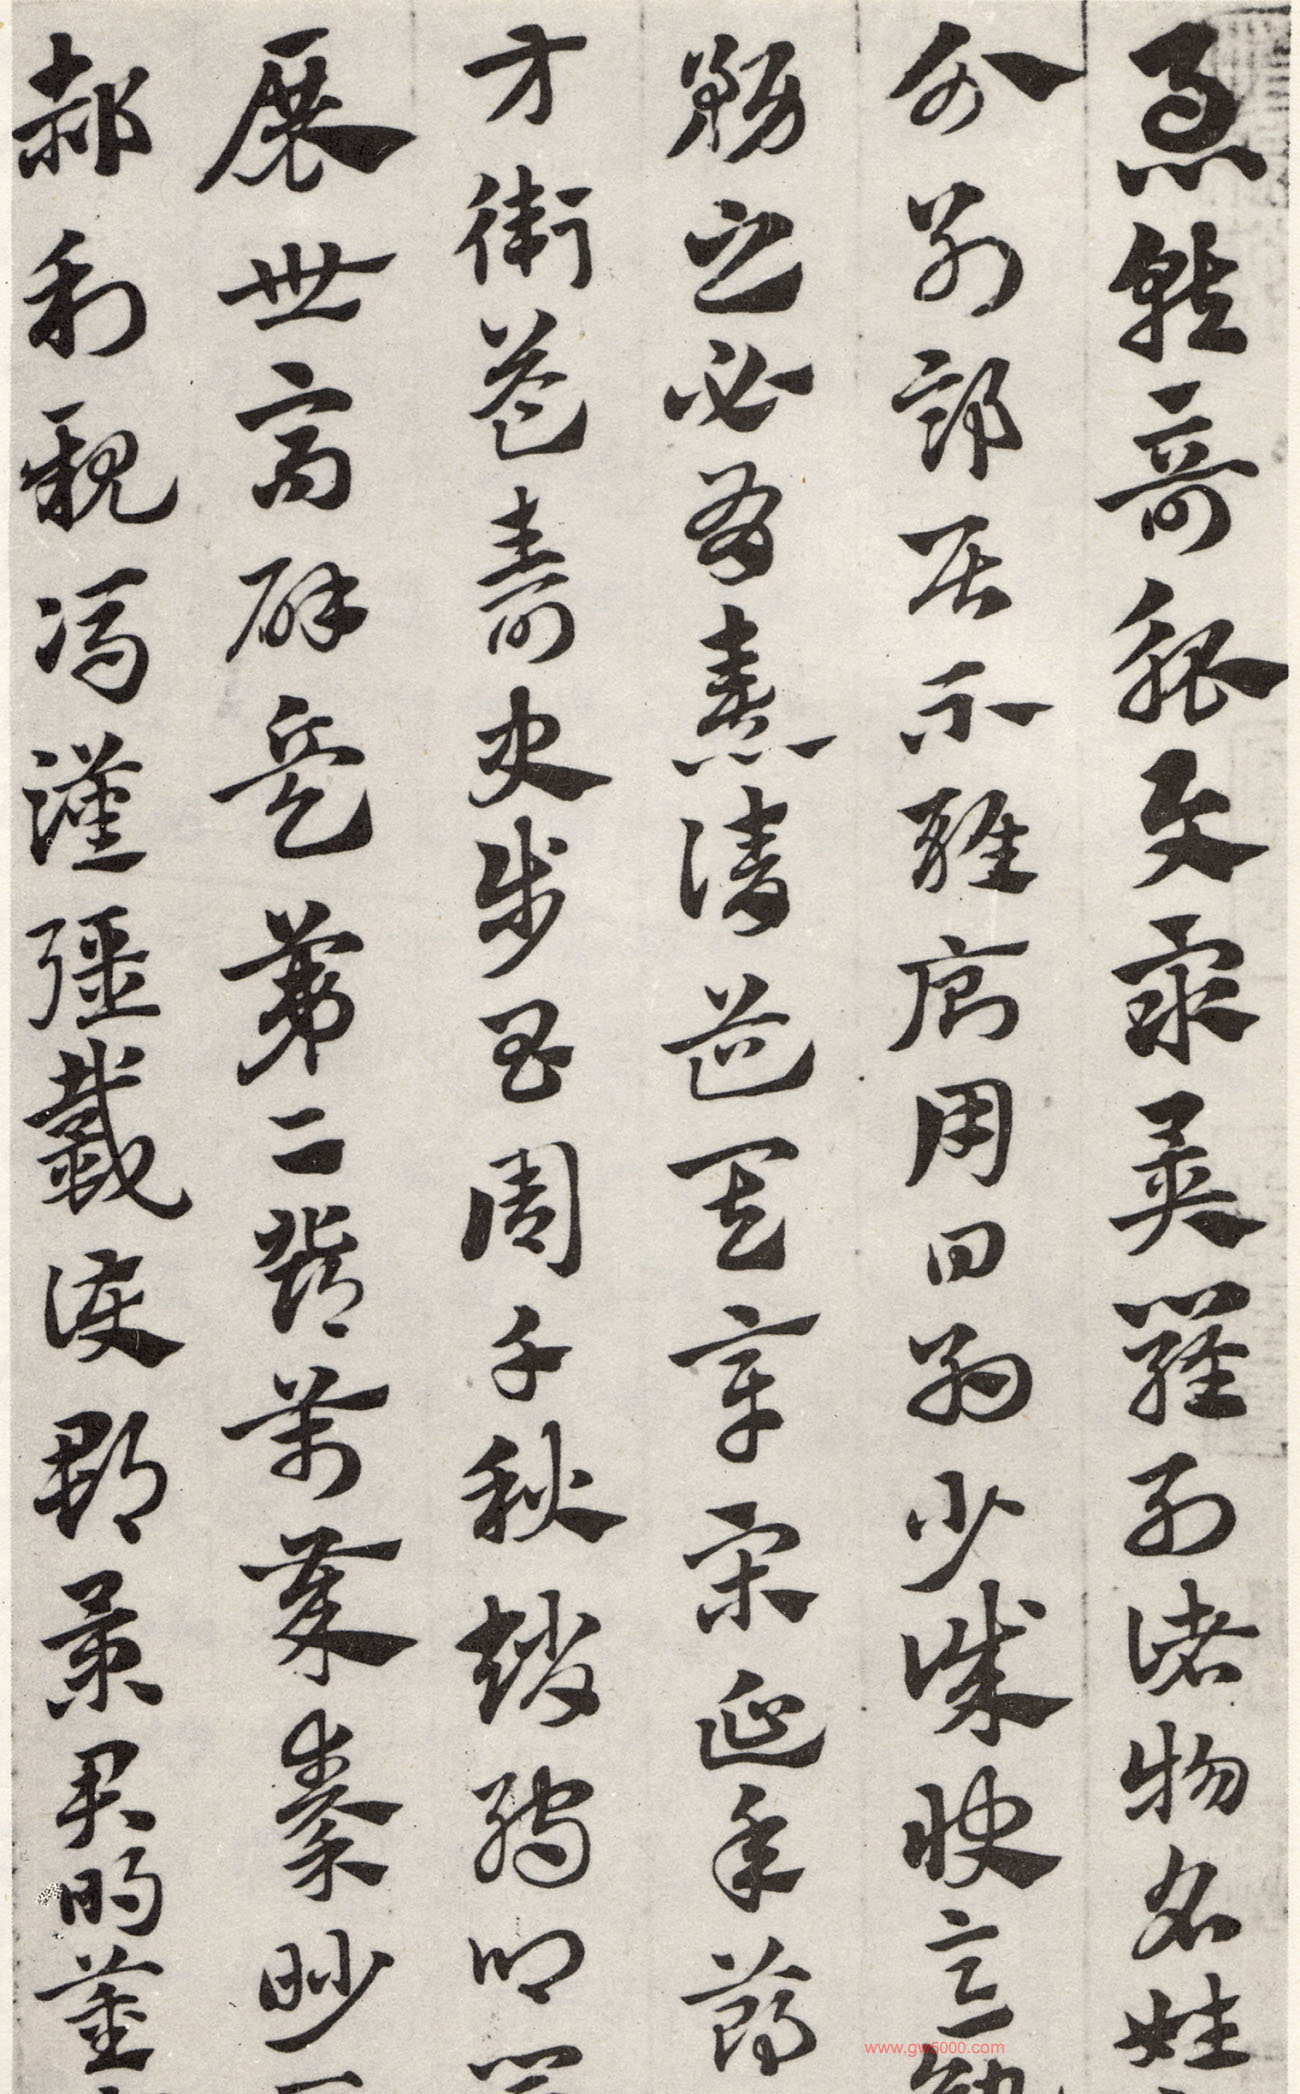 急就奇觚與衆異羅列諸物名姓
分別部居不雜廁用日約少誠快意
務之必有憙請道其章宋延年鄭
方衛益壽史步昌周千秋趙孺卿
展世高辟兵第二鄧萬歲秦眇
郝利親馮漢彊戴護郡景君明董
www.gw5000.com